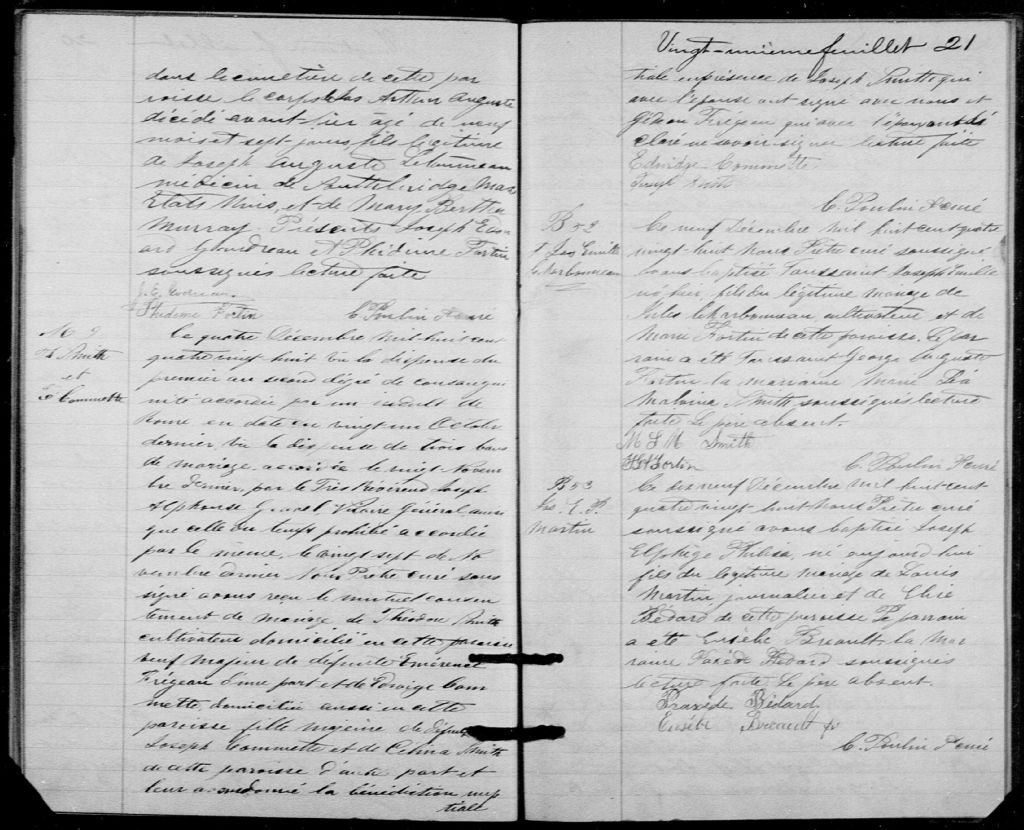 dans le cimetière de cette par
roisse le corps de Jos Arthur Auguste
décédé avant-hier agé de neuf
mois et sept jours fils légitime
de Joseph Auguste Letourneau
médecin de Mas
Etats Unis, et de Mary Bertha
Murray Présents Joseph Edou
ard Goudreau & Phédime Fortin
soussignés lecture faite
J. E. Goudreau
Phédime Fortin C. Poulin Ptre curé
M 9
T Smith
et
E Commette
Le quatre Décembre mil huit cent
quatre vingt huit Vu la dispense du
premier au second dégré de consangui
nité accordée par un indult de
Rome, en date du vingt un Octobre
dernier, vu la dispense de trois bans
de mariage, accordée le vingt Novem
bre dernier, par le Très Révérend Joseph
Alphonse Gravel Vicaire Général ainsi
que celle du temps prohibé accordée
par le meme, le vingt sept de No
vembre dernier Nous Prêtre curé sous
signé avons reçu le mutuel consen
tement de mariage de Théodore Smith
cultivateur domicilié en cette paroisse
veuf majeur de défunte Emérence
Frégeau d'une part et de Edwige Com
mette domiciliée aussi en cette
paroisse fille majeure de défunt
Joseph Commette et de Célina Smith
de cette paroisse d'autre part et
leur avons donné la bénédiction nup
tiale
Vingt-unième feuillet 21
tiale en présence de Joseph Smith qui
avec l'épouse ont signé avec nous et
Gédéon Frégeau qui avec l'époux ont dé
claré ne savoir signer lecture faite
Edwidge Commette
Joseph Smith
C. Poulin Ptre curé
B 52
T Jos Emile
Charbonneau
Ce neuf Décembre mil huit cent quatre
vingt-huit Nous Prêtre curé soussigné
avons baptisé Toussaint Joseph Emile
né hier fils du légitime mariage de
Jules Charbonneau cultivateur et de
Marie Fortin de cette paroisse. Le par
rain a été Toussaint George Auguste
Fortin la marraine Marie Léa
Malvina Smith soussignés lecture
faite Le père absent.
M L M Smith
T G A Fortin C. Poulin Ptre curé
B 53
Jos. E. P.
Martin
Ce dix neuf Décembre mil huit cent
quatre vingt huit Nous Prêtre curé
soussigné avons baptisé Joseph
Elphège Philias, né aujourd'hui
fils du légitime mariage de Louis
Martin journalier et de
Bédard de cette paroisse Le parrain
a été Eusèbe Breault la mar
raine Praxède Bédard soussignés
lecture faite Le père absent.
Praxède Bédard
Eusèbe Breault
C. Poulin Ptre curé